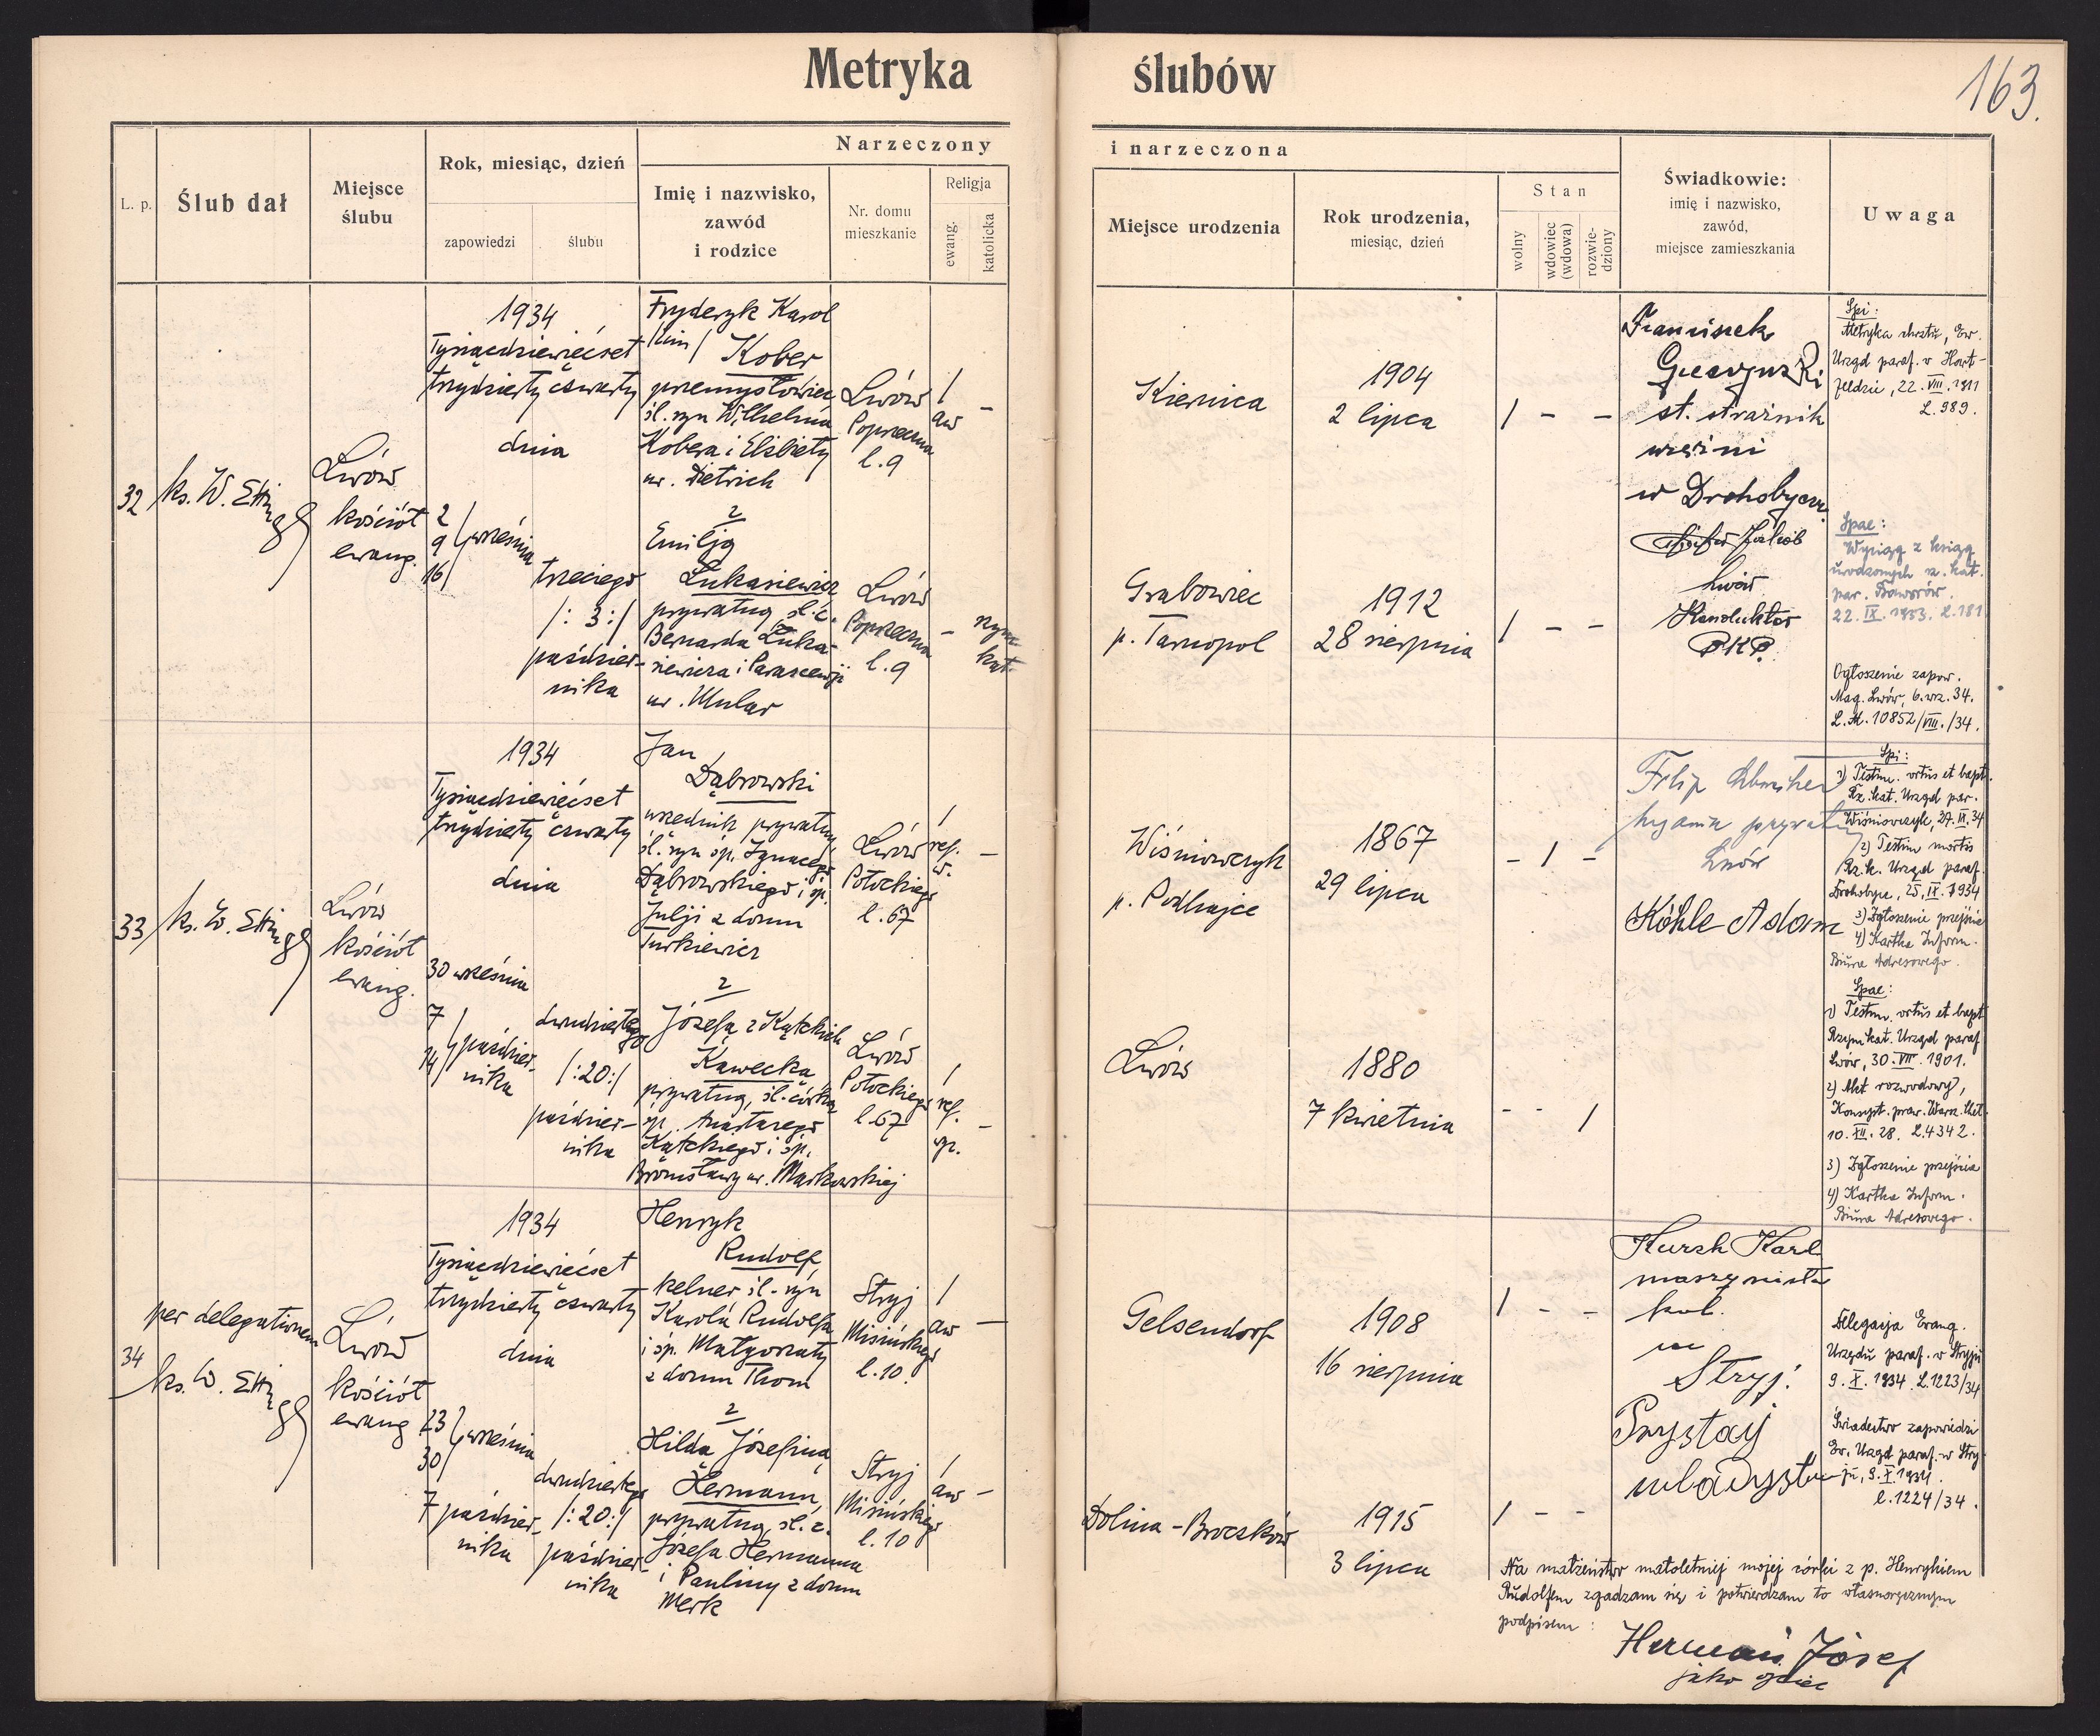 Metryka ślubów
163.
L. p.
Ślub dał
Miejsce
ślubu
Rok, miesiąc, dzień
zapowiedzi
ślubu
Narzeczony
Imię i nazwisko,
zawód
i rodzice
Nr. domu
mieszkanie
Religja
ewang.
katolicka
i narzeczona
Miejsce urodzenia
Rok urodzenia,
miesiąc, dzień
Stan
wolny
wdowiec
(wdowa)
rozwie-
dziony
Świadkowie:
imię i nazwisko,
zawód,
miejsce zamieszkania
Uwaga
32
ks. W. Etting
Lwów
kościół
ewang.
1934
Tysiącdziewięćset
trzydziesty czwarty
dnia
2
9
16
września
trzeciego
/: 3 :/
paździer-
nika
Fryderyk Karol
Kober
przemysłowiec
śl. syn Wilhelma
Kobera i Elżbiety
ur. Dietrich
Lwów
Poprzeczna
l. 9
1
aw
-
2
Emilja
Łukasiewicz
prywatna, śl. c.
Bernarda Łuka-
siewicza i Parascewji
ur. Mular
Lwów
Poprzeczna
l. 9
-
rzym
kat.
Kiernica
1904
2 lipca
1 - -
Grabowiec
p. Tarnopol
1912
28 sierpnia
1 - -
Franciszek
st. strażnik
więzini
w Drohobyczu
Jakób
Lwów
Konduktor
P.K.P.
Spi:
Metryka chrztu, Ew.
Urząd paraf. w Hart-
feldzie, 22. VIII. 1911
L. 989.
Spae:
Wyciąg z ksiąg
urodzonych rz. kat.
par. Baworów.
22. IX. 1933. L. 181
Ogłoszenie zapow.
Mag. Lwów, 6. wrz. 34.
L. M. 10852/VIII./34.
33
ks. W. Etting
Lwów
kościół
ewang.
1934
Tysiącdziewięćset
trzydziesty czwarty
dnia
30 września
7
14
paździer-
nika
dwudziestego
/: 20 :/
paździer-
nika
Jan
Dąbrowski
urzędnik prywatny
śl. syn śp. Ignacego
Dąbrowskiego i śp.
Julji z domu
Turkiewicz
Lwów
Potockiego
l. 67
1
ref.
-
2
Józefa z Kątckich
Kawecka
prywatna, śl. córka
śp. Anastazego
Kątckiego i śp.
Bronisławy ur. Markowskiej
Lwów
Potockiego
l. 67
1
ref.
-
Wiśniowczyk
p. Podhajce
1867
29 lipca
- 1 -
Lwów
1880
7 kwietnia
- - 1
Filip
prywatny
Lwów
Köhle Adam
Spi:
1) Testim. ortus et bapt.
Rz. kat. Urząd par.
Wiśniowczyk, 27. IX. 34
2) Testim mortis
Rz. k. Urząd paraf.
Drohobycz, 25. IX. 1934
3) Zgłoszenie przejścia
4) Kartka Inform.
Biura Adresowego.
Spae:
1) Testim. ortus et bapt
Rzym kat. Urząd paraf
Lwów, 30. VIII. 1901.
2) Akt rozwodowy,
10. XII. 28. L. 4342.
3) Zgłoszenie przejścia
4) Kartka Inform.
Biura Adresowego.
34
per delegationem
ks. W. Etting
Lwów
kościół
ewang
1934
Tysiącdziewięćset
trzydziesty czwarty
dnia
23
30
września
7 paździer-
nika
dwudziestego
/: 20 :/
paździer-
nika
Henryk
Rudolf,
kelner śl. syn
Karola Rudolfa
i śp. Małgorzaty
z domu Thom
Stryj
Misińskiego
l. 10.
1
aw
-
2
Hilda Józefina
Hermann,
prywatna, śl. c.
Józefa Hermanna
i Pauliny z domu
Merk
Stryj
Misińskiego
l. 10
1
aw
-
Gelsendorf
1908
16 sierpnia
1 - -
Dolina - Broczków
1915
3 lipca
1 - -
Kursh Karl
maszynista
kol.
Stryj.
Przystaj
Władysław
Delegacja Ewang.
Urzędu paraf. w Stryju
9. X. 1934. L. 1223/34
Świadectwo zapowiedzi
Ew. Urząd paraf. w Stry-
ju, 9. X. 1934.
L. 1224/34.
Na małżeństwo małoletniej mojej córki z p. Henrykiem
Rudolfem zgadzam się i potwierdzam to własnoręcznym
podpisem:
Hermann Józef
jako ojciec